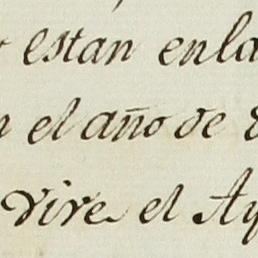 están enla
el año de
vive el Ay